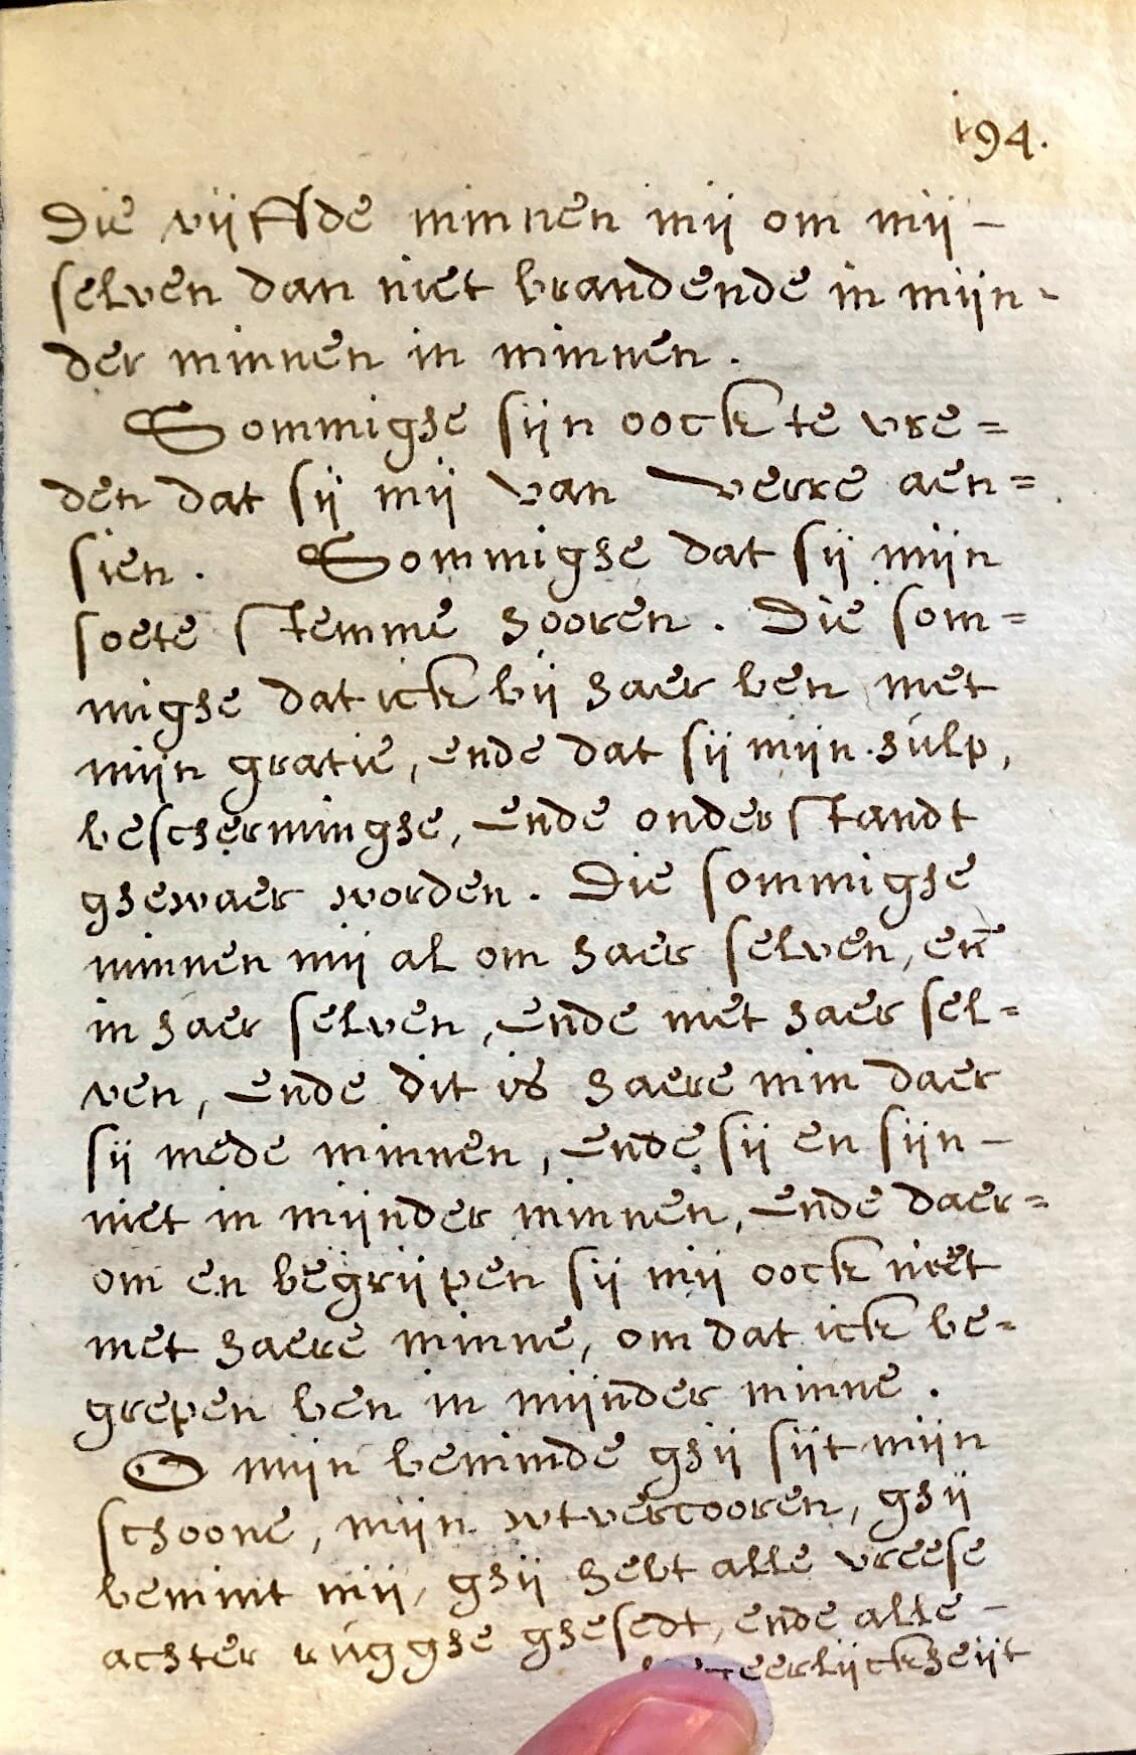 194.
Die vijffde minnen mij om mij-
selven dan niet brandende in mijn-
der minnen in minnen.
Sommighe sijn oock te vre=
den dat sij mij van verre aen=
sien. Sommighe dat sij mijn
soete stemme hooren. Die som=
mighe dat ick bij haer ben met
mijn gratie, ende dat sij mijn hulp,
bescherminghe, ende onderstandt
ghewaer worden. Die sommighe
minnen mij al om haer selven, en̄
in haer selven, ende met haer sel=
ven, ende dit is haere min daer
sij mede minnen, ende sij en sijn-
niet in mijnder minnen, ende daer=
om en begrijpen sij mij oock niet
met haere minne, om dat ick be=
grepen ben in mijnder minne.
O mijn beminde ghij sijt mijn
schoone, mijn wtvercooren, ghij
bemint mij, ghij hebt alle vreese
achter rugghe ghesedt, ende alle-